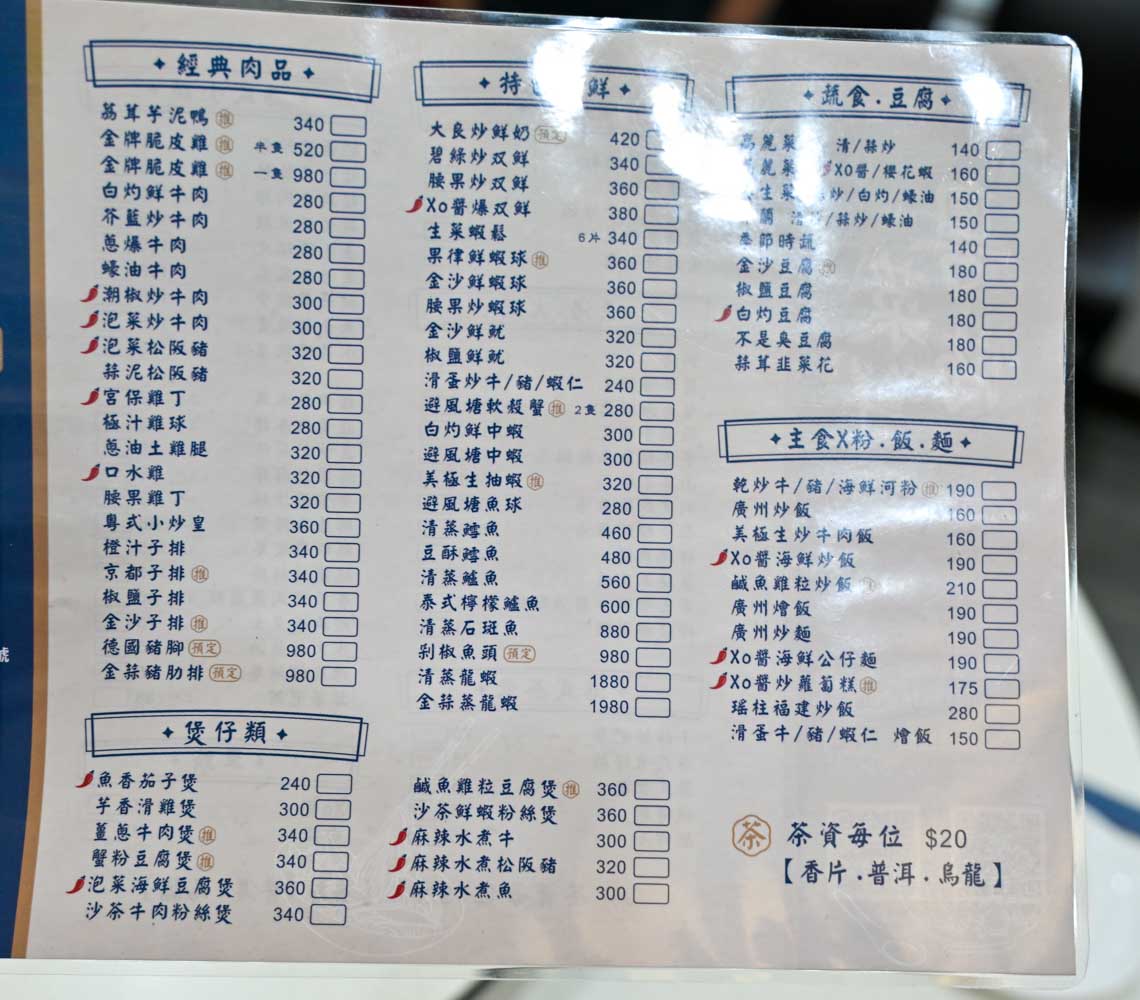 經典肉品
荔茸芋泥鴨 推 340
金牌脆皮雞 推 半隻 520
金牌脆皮雞 推 一隻 980
白灼鮮牛肉 280
芥藍炒牛肉 280
蔥爆牛肉 280
蠔油牛肉 280
潮椒炒牛肉 300
泡菜炒牛肉 300
泡菜松阪豬 320
蒜泥松阪豬 320
宮保雞丁 280
極汁雞球 280
蔥油土雞腿 320
口水雞 320
腰果雞丁 320
粵式小炒皇 360
橙汁子排 340
京都子排 推 340
椒鹽子排 340
金沙子排 推 340
德國豬腳 預定 980
金蒜豬肋排 預定 980
特 鮮
大良炒鮮奶 預定 420
碧綠炒双鮮 340
腰果炒双鮮 360
Xo醬爆双鮮 380
生菜蝦鬆 6片 340
果律鮮蝦球 推 360
金沙鮮蝦球 360
腰果炒蝦球 360
金沙鮮魷 320
椒鹽鮮魷 320
滑蛋炒牛/豬/蝦仁 240
避風塘軟殼蟹 推 2隻 280
白灼鮮中蝦 300
避風塘中蝦 300
美極生抽蝦 推 320
避風塘魚球 280
清蒸鱈魚 460
豆酥鱈魚 480
清蒸鱸魚 560
泰式檸檬鱸魚 600
清蒸石斑魚 880
剁椒魚頭 預定 980
清蒸龍蝦 1880
金蒜蒸龍蝦 1980
蔬食.豆腐
高麗菜 清/蒜炒 140
麗菜 XO醬/櫻花蝦 160
生菜 炒/白灼/蠔油 150
蘭 /蒜炒/蠔油 150
季節時蔬 140
金沙豆腐 推 180
椒鹽豆腐 180
白灼豆腐 180
不是臭豆腐 180
蒜茸韭菜花 160
主食X粉.飯.麵
乾炒牛/豬/海鮮河粉 推 190
廣州炒飯 160
美極生炒牛肉飯 160
Xo醬海鮮炒飯 190
鹹魚雞粒炒飯 210
廣州燴飯 190
廣州炒麵 190
Xo醬海鮮公仔麵 190
Xo醬炒蘿蔔糕 推 175
瑤柱福建炒飯 280
滑蛋牛/豬/蝦仁 燴飯 150
煲仔類
魚香茄子煲 240
芋香滑雞煲 300
薑蔥牛肉煲 推 340
蟹粉豆腐煲 推 340
泡菜海鮮豆腐煲 360
沙茶牛肉粉絲煲 340
鹹魚雞粒豆腐煲 推 360
沙茶鮮蝦粉絲煲 360
麻辣水煮牛 300
麻辣水煮松阪豬 320
麻辣水煮魚 300
茶 茶資每位 $20
【香片.普洱.烏龍】
號